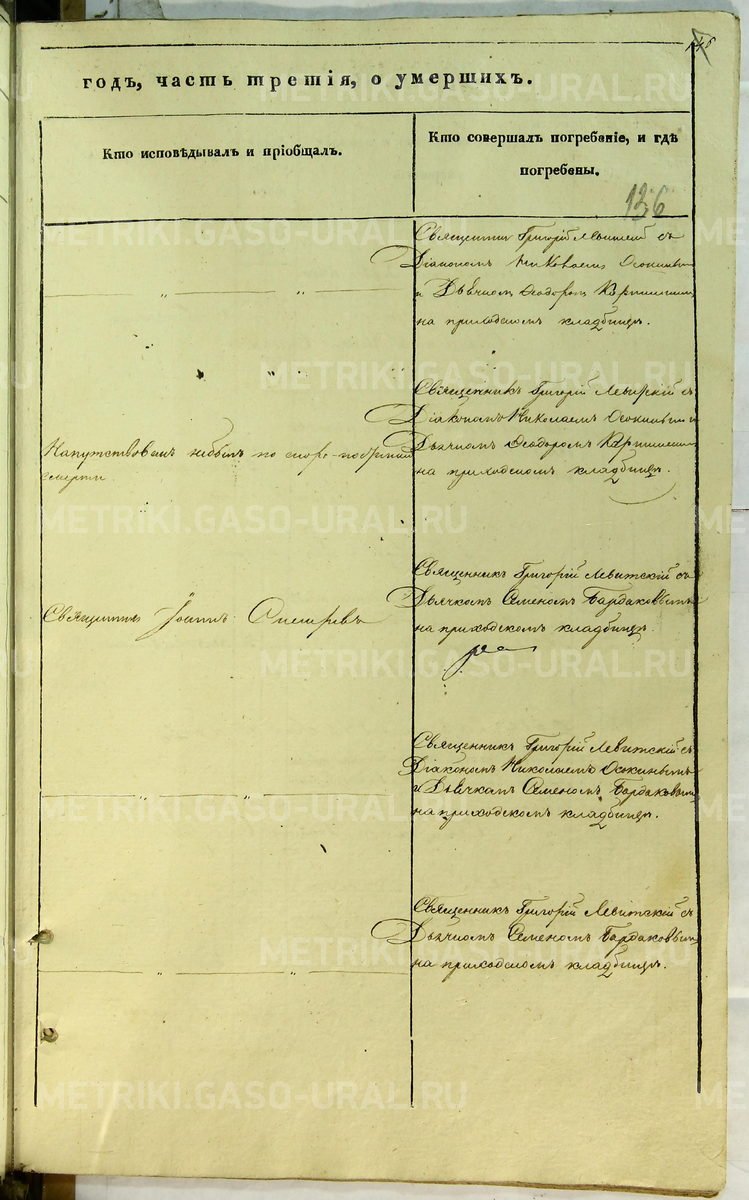 годъ, часть третія, о умершихъ.
Кто исповѣдывалъ и пріобщалъ.
Кто совершалъ погребеніе, и гдѣ
погребены.
136
Священникъ Григорій Левитскій съ
Діакономъ Николаемъ Осокинымъ
и Дьячкомъ Ѳеодоромъ
на приходскомъ кладбищѣ.
Напутствованъ небылъ по скоро-
смерти.
Священникъ Григорій Левитскій съ
Діакономъ Николаемъ Осокинымъ и
Дьячкомъ Ѳеодоромъ
на приходскомъ кладбищѣ.
Священникъ Іоаннъ
Священникъ Григорій Левитскій съ
Дьячкомъ Семеномъ Бардаковымъ
на приходскомъ кладбищѣ.
Священникъ Григорій Левитскій съ
Діакономъ Николаемъ Осокинымъ
и Дьячкомъ Семеномъ Бардаковымъ
на приходскомъ кладбищѣ.
Священникъ Григорій Левитскій съ
Дьячкомъ Семеномъ Бардаковымъ
на приходскомъ кладбищѣ.
METRIKI.GASO-URAL.RU